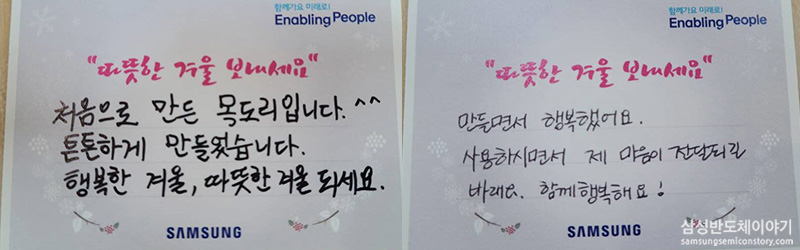 함께가요 미래로!
Enabling People
"따뜻한 겨울 보내세요"
처음으로 만든 목도리입니다. ^^
튼튼하게 만들었습니다.
행복한 겨울, 따뜻한 겨울 되세요.
SAMSUNG
함께가요 미래로!
Enabling People
"따뜻한 겨울 보내세요"
만들면서 행복했어요.
사용하시면서 제 마음이 전달되길
바래요. 함께 행복해요!
SAMSUNG
삼성반도체이야기
www.samsungsemiconstory.com